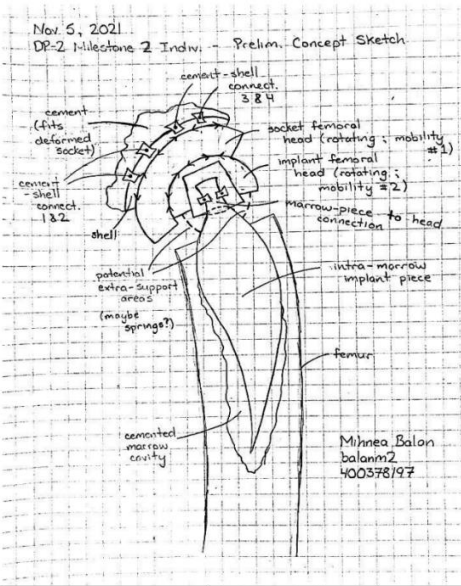 Nov. 5, 2021
DP-2 Milestone 2 Indiv. - Prelim. Concept Sketch
cement-shell
connect.
3 & 4
cement
(fits
deformed
socket)
socket femoral
head (rotating ; mobility
#1)
implant femoral
head (rotating ;
mobility #2)
cement
-shell
connect.
1 & 2
marrow-piece-to head
connection
shell
potential
extra-support
areas
(maybe
springs?)
intra-morrow
implant piece
femur
cemented
marrow
cavity
Mihnea Balan
balanm2
400378197